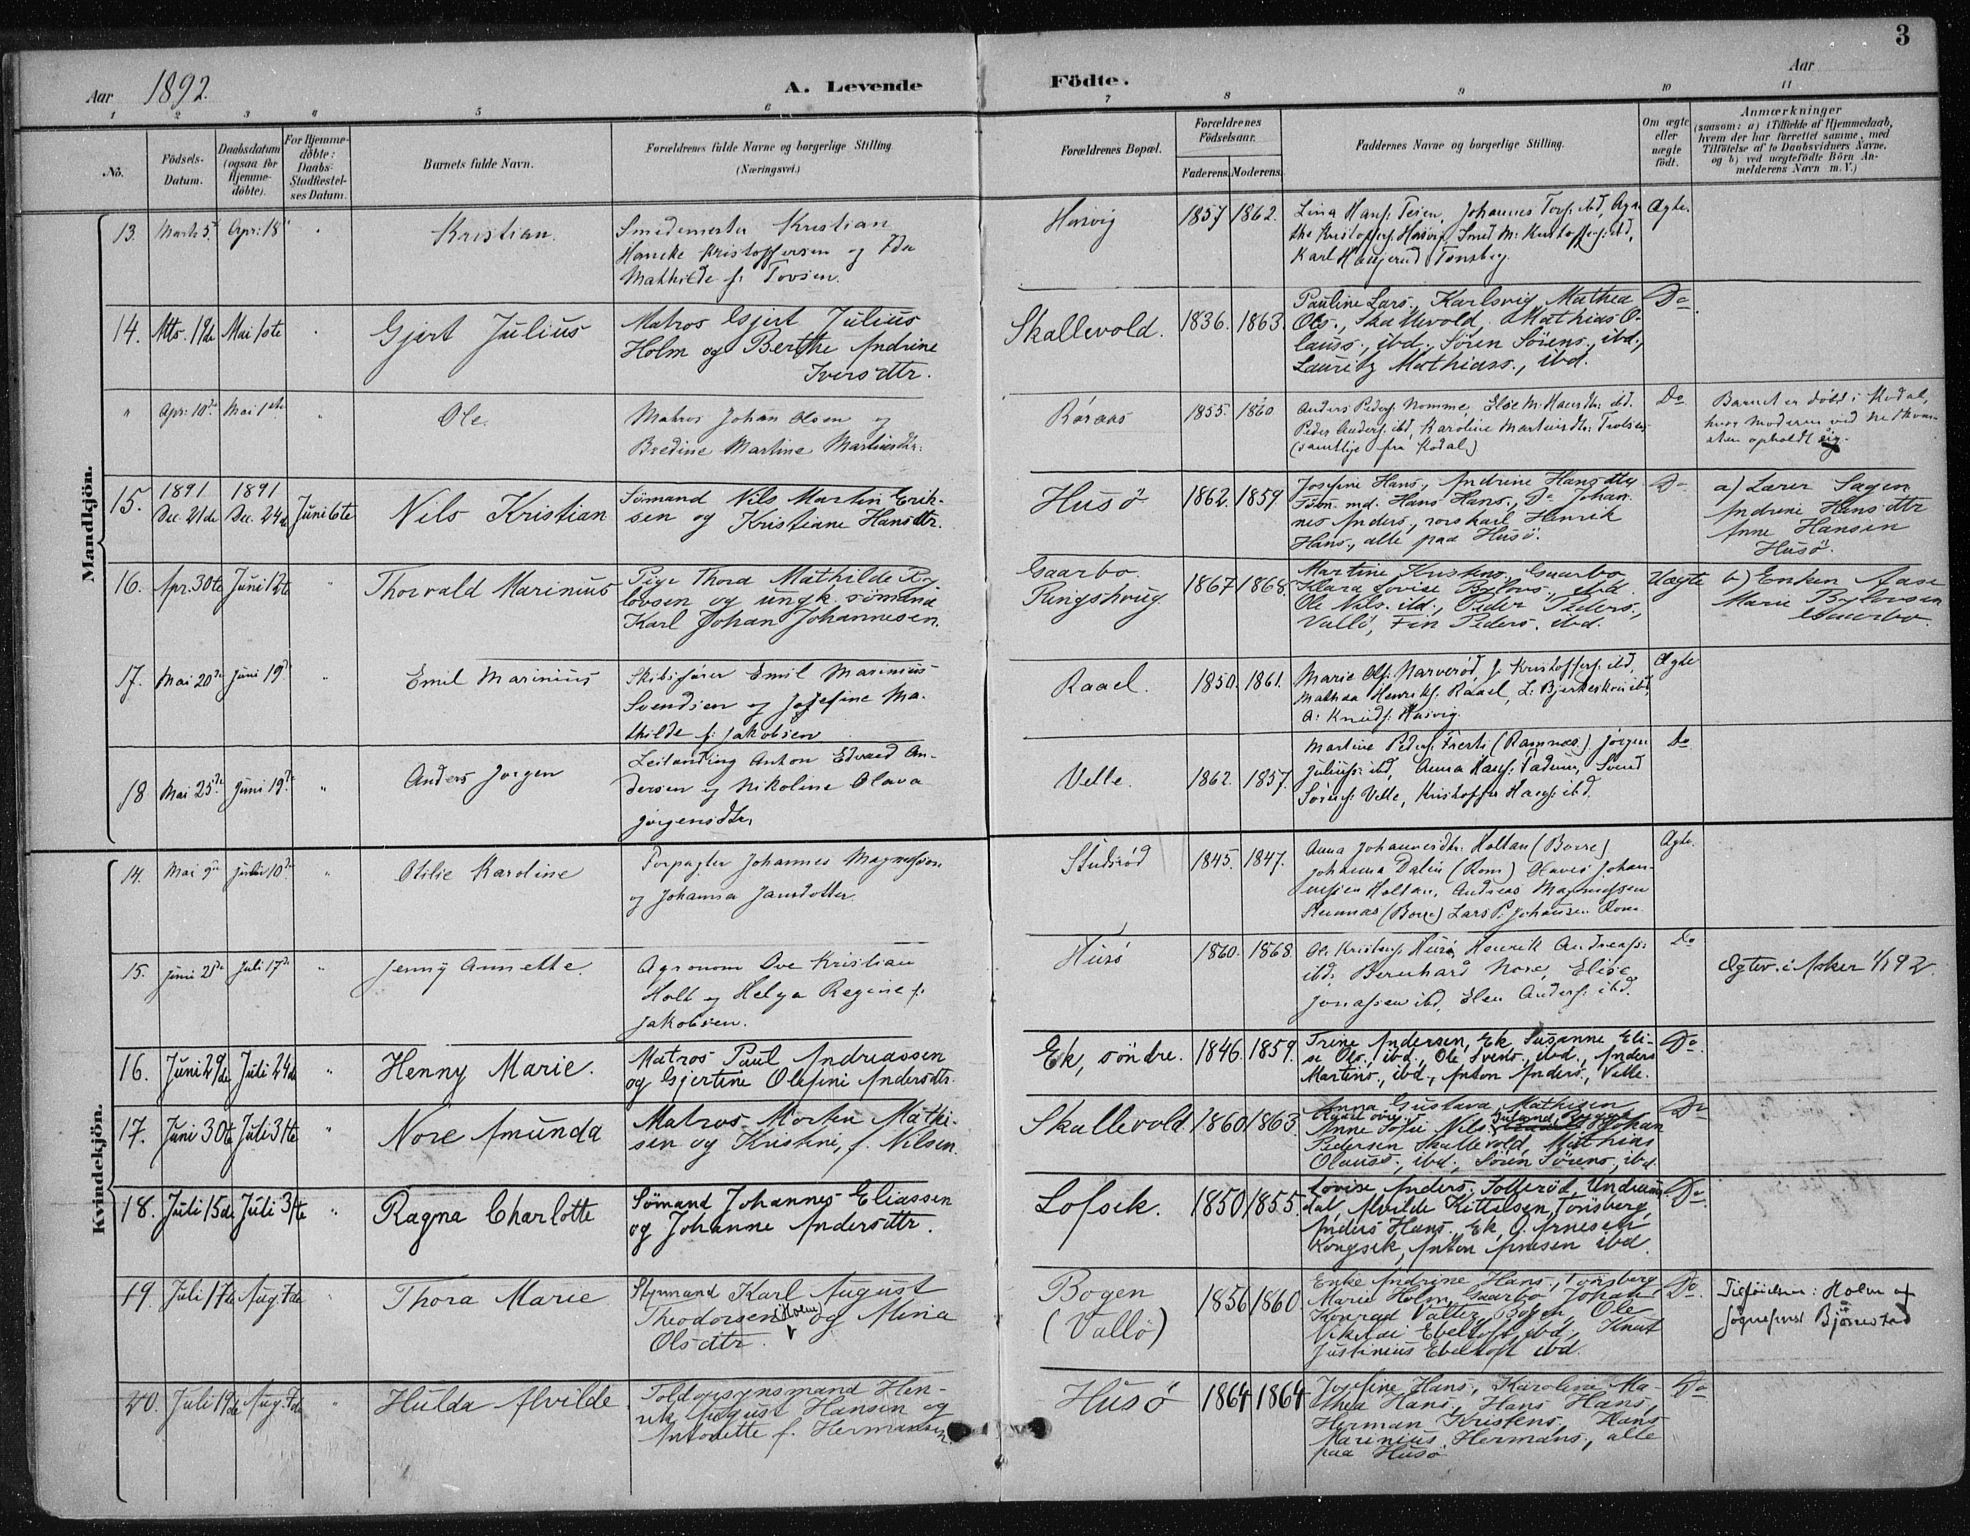 3
Aar 1892. A. Levende Födte. Aar
1 2 3 4 5 6 7 8 9 10 11
No.
Födsels-Datum.
Daabsdatum (ogsaa for Hjemme-döbte).
For Hjemme-döbte: Daabs-Stadfæstel-ses Datum.
Barnets fulde Navn.
Forældrenes fulde Navne og borgerlige Stilling. (Næringsvei.)
Forældrenes Bopæl.
Forældrenes Födselsaar.
Faderens. Moderens.
Faddernes Navne og borgerlige Stilling.
Om ægte eller uægte födt.
Anmærkninger
(saasom: a) i Tilfælde af Hjemmedaab,
hvem der har forrettet samme, med
Tilföielse af to Daabsvidners Navne,
og b) ved uægtefödte Börn An-
melderens Navn m. V.)
Mandkjön.
13. Marts 5te Apr. 18de " Kristian.
Smedemester Kristian
Hancke Kristoffersen og Ida
Mathilde f. Tovsen.
Husvig 1857 1862.
Lina Hans. Teien, Johannes Tors. ibd,
Karl Haugerud Tönsberg
Ægte.
14. Mts. 19de Mai 1ste " Gjert Julius
Matros Gjert Julius
Holm og Berthe Andrine
Iversdtr.
Skallevold. 1836. 1863.
Pauline Lars., Karlsvig, Mathea
Ols., Skallevold, Mathias O-
lauss., ibd., Sören Sörens., ibd.,
Lauritz Mathiass., ibd.
Do
" Apr. 10de Mai 1ste " Ole.
Matros Johan Olsen og
Bredine Martine Martinsdtr.
Röraas 1855. 1860
Anders Peders. Nomme, Else M. Hansdtr. ibd.
Peder Anders. ibd, Karoline Martinsdtr.
(samtlige fra Kodal)
Do
Barnet er döbt i Kodal,
hvor moderen ved nedkom-
sten opholdt sig.
15. 1891 Dec. 21de 1891 Dec. 24de Juni 6te Nils Kristian
Sömand Nils Martin Erik-
sen og Kristiane Hansdtr.
Husö 1862. 1859.
Josefine Hans., Andrine Hansdtr.
Töm.md. Hans Hans., Do Johan
nes Anders., rorskarl Henrik
Hans., alle paa Husö.
Do
a) Lærer Sagen
Andrine Hansdtr
Anne Hansen
Husö.
16. Apr. 30te Juni 12te " Thorvald Marinius
Pige Thora Mathilde By-
lovsen og ungk. sömand
Karl Johan Johannesen.
Gaarbo.
Ringshaug 1867 1868.
Martine Kristens., Gaarbo
Klara Lovise Bylovs., ibd.
Ole Nils. ibd., Peder Peders.,
Vallö, Fin Peders. ibd.
Uægte
b) Enken Aase
Marie Bylovsen
Gaarbo.
17. Mai 20de Juni 19de " Emil Marinius
Skibsförer Emil Marinius
Svendsen og Josefine Ma-
thilde f. Jakobsen
Raael. 1850. 1861.
Marie Ols. Narveröd, J. Kristoffers. ibd,
Mathea Henriks. Raael, L. Bjerkeskov ibd,
A. Knuds. Husvig.
Ægte
18 Mai 25de Juni 19de " Anders Jorgen
Leilænding Anton Edvard An-
dersen og Nikoline Olava
Jörgensdtr.
Velle. 1862. 1857.
Martine Peders. (Ramnæs) Jörgen
Juliuss. ibd, Anna Hans. Svend
Sörens. Velle, Kristoffer Hans. ibd.
Do
Kvindekjön.
14. Mai 9de Juli 10de " Otilie Karoline
Forpagter Johannes Magnussen
og Johanna Jansdotter
Studsröd 1845. 1847.
Anna Johannesdtr. Holtan (Borre)
Johanna Dalin (Rom) Olaves Johan-
nessen Holtan, Andreas Magnussen
(Borre) Lars P. Johansen Rom
Ægte.
15. Juni 21de Juli 17de " Jenny Annette.
Agronom Ove Kristian
Holt og Helga Regine f.
Jakobsen.
Husö 1860. 1868.
Ole Kristens. Husö, Henrik Andreass.
ibd, Bernhard Nore, Elise
Jonassen ibd, Elen Anders. ibd.
Do
Ægtev. i Asker
16. Juni 29de Juli 24de " Henny Marie.
Matros Paul Andreassen
og Gjertine Olefine Andersdtr.
Ek, söndre. 1846. 1859.
Trine Andersen, Ek, Susanne Eli-
se Ols. ibd., Ole Svens., ibd., Anders
Martins., ibd., Anton Anders., Velle.
Do
17. Juni 30te Juli 31te " Nore Amunda
Matros Morten Mathi-
sen og Kristine, f. Nilsen.
Skallevold 1860 1863.
Anna Gustava Mathisen
Anne Sofie Nils. Johan
Pedersen Skallevold, Mathias
Olauss., ibd., Sören Sörens., ibd.
Do
18. Juli 15de Juli 31te " Ragna Charlotte
Sömand Johannes Eliassen
og Johanne Andersdtr.
Lofsek. 1850 1855.
Lovise Anders. Solleröd Undrums-
dal, Alvilde Kittelsen, Tönsberg,
Anders Hans. Ek, O. Arnesen
Kongsek, Anton Arnesen ibd.
Do
19. Juli 17de Aug. 7de " Thora Marie
Styrmand Karl August
Theodorsen (Holm) og Mina
Olsdtr.
Bogen
(Vallö) 1856 1860.
Enke Andrine Hans., Tönsberg
Marie Holm, Gaarbo, Johan
Konrad Valter, Bogen, Ole
Nikolai Ebeltoft, ibd, Knut
Justinius Ebeltoft ibd.
Do
Tilföielsen: Holm af
sognepræst Björnestad
20. Juli 19de Aug. 7de " Hulda Alvilde.
Toldopsynsmand Hen-
rik August Hansen og
Antonette f. Hermansen.
Husö 1864 1864
Josefine Hans., Karoline Ma-
thea Hans., Hans Hans.,
Herman Kristens., Hans
Marinius Hermans., alle
paa Husö
Do